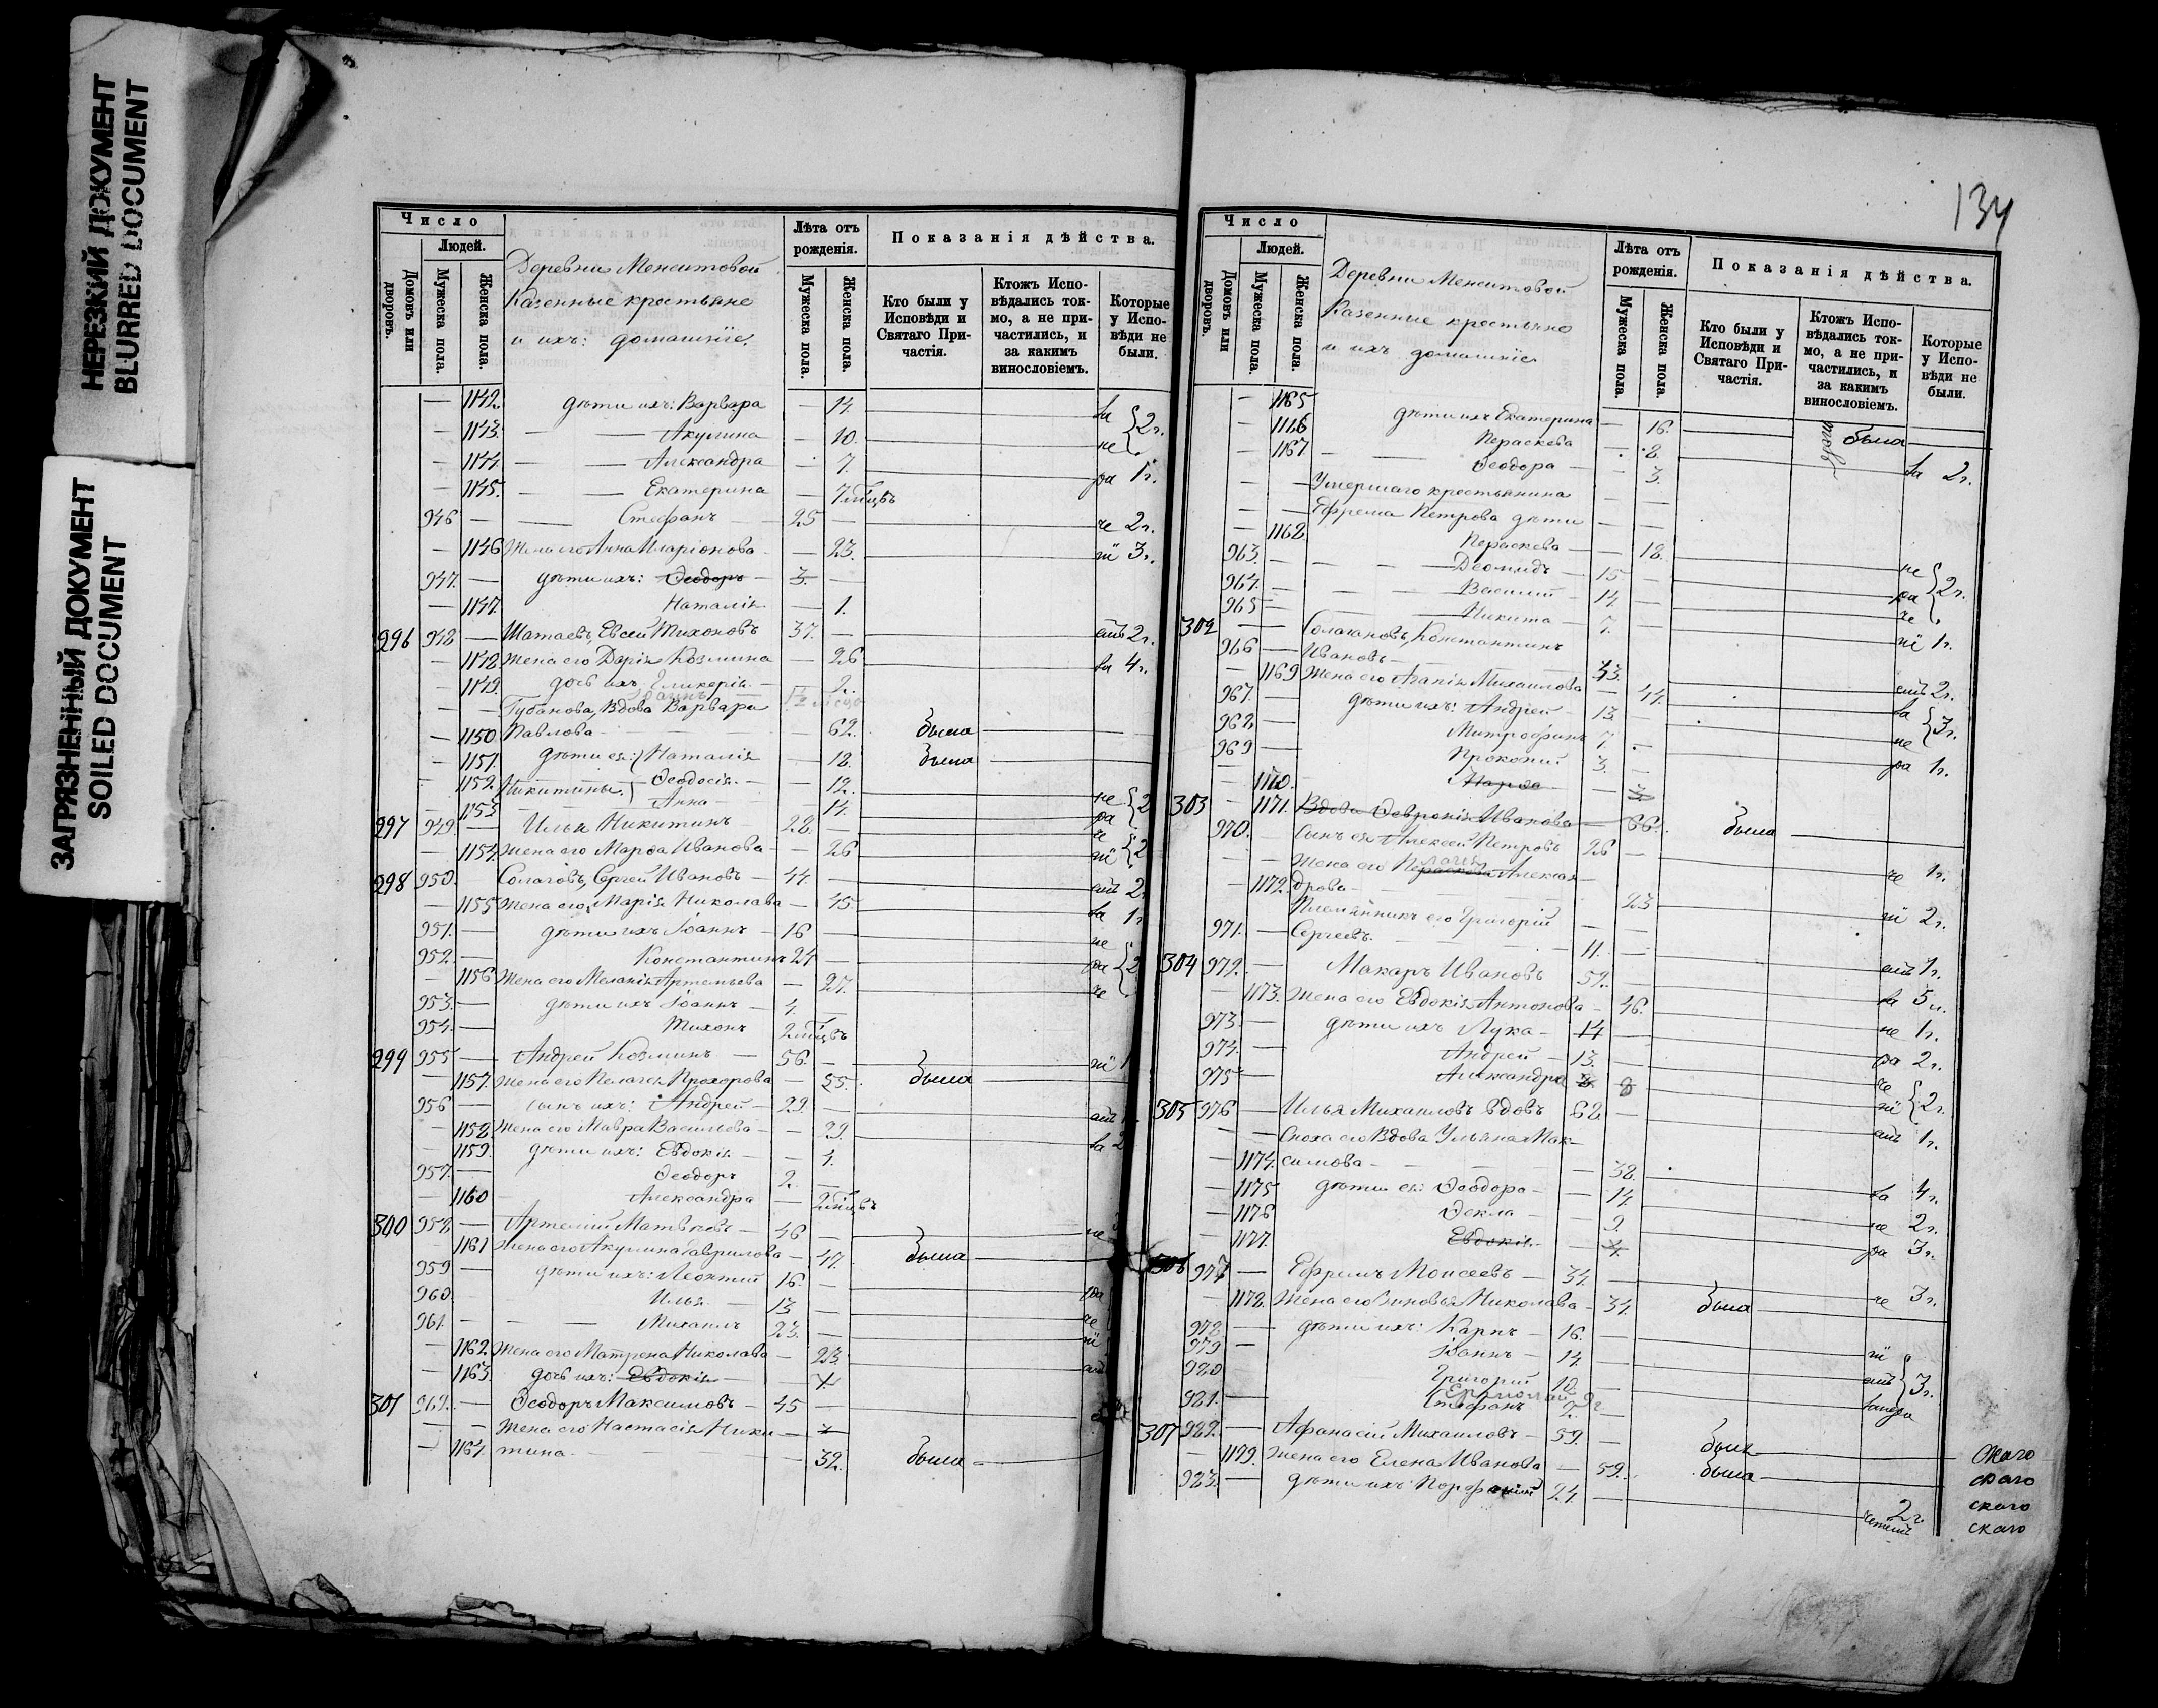 НЕРЕЗКИЙ ДОКУМЕНТ
BLURRED DOCUMENT
ЗАГРЯЗНЕННЫЙ ДОКУМЕНТ
SOILED DOCUMENT
Число
Людей.
Домовъ или дворовъ.
Мужеска пола.
Женска пола.
Деревни Менситовой
Казенные крестьяне
и ихъ: домашніе.
Лѣта отъ рожденія.
Мужеска пола.
Женска пола.
Показанія дѣйства.
Кто были у Исповѣди и Святаго Причастія.
Ктожъ Исповѣдались токмо, а не причастились, и за какимъ винословіемъ.
Которые у Исповѣди не были.
— 1142. дѣти ихъ: Варвара — 14. ва 2г.
— 1143. — Акулина — 10. не
— 1144. — Александра — 7. ра 1г.
— 1145. — Екатерина — 7 мѣцъ
946 — Стефанъ — 25 — че 2г.
— 1146 Жена его Анна Иларіонова — 23. тіи 3г.
947. — дѣти ихъ: Ѳеодоръ — 3. —
— 1147. Наталія — 1.
296 948 — Шатаевъ, Евсей Тихоновъ 37. — 2г.
— 1148. Жена его Дарія Козмина — 26 ва 4г.
— 1149. дочь ихъ Гликерія — 2.
— — Губанова, Вдова Варвара
— 1150. Павлова — 62. была
— 1151. дѣти ея: Наталія — 18. была
— 1152. Никитины. Ѳеодосія — 12. не 2
— 1153 Анна — 14. ра
297 949. — Илья Никитинъ 28. — че 2
— 1154. Жена его Марѳа Иванова — 26
298 950. Солаговъ, Сергей Ивановъ — 44. — 2
— 1155 Жена его, Марія Николава — 45. ва 1г
951. — дѣти ихъ Іоаннъ — 16 — не
952. — Константинъ 24 — ра 2
— 1156 Жена его Меланія Артемьева — 27. че
953. — дѣти ихъ Іоаннъ — 4. —
954. — Тихонъ 2 мѣцъ
299 955 — Андрей Козминъ — 56. — 1
— 1157. Жена его Пелагея Прохорова — 55. была
956 — сынъ ихъ: Андрей — 29. —
— 1158. Жена его Мавра Васильева — 29. ва 2
— 1159. дѣти ихъ: Евдокія — 4.
957. — Ѳеодоръ 2. —
— 1160 Александра — 2 мѣцъ
300 958. — Артемій Матвѣевъ — 46 — не
— 1161 Жена его Акулина Гаврилова — 47. была
959 — дѣти ихъ: Леонтій 16. — ра
960 — Илья — 13 — че
961. — — Михаилъ 23. —
— 1162. Жена его Матрена Николава — 23.
— 1163. дочь ихъ: Евдокія — 1.
301 962. — Ѳеодоръ Максимовъ — 45 —
— — Жена его Настасія Ники
— 1164. тина — 32. была
134
Число
Людей.
Домовъ или дворовъ.
Мужеска пола.
Женска пола.
Деревни Менситовой
Казенные крестьяне
и ихъ домашніе
Лѣта отъ рожденія.
Мужеска пола.
Женска пола.
Показанія дѣйства.
Кто были у Исповѣди и Святаго Причастія.
Ктожъ Исповѣдались токмо, а не причастились, и за какимъ винословіемъ.
Которые у Исповѣди не были.
— 1165 дѣти ихъ Екатерина — 16. была
— 1166 Параскева — 8. ва 2г.
— 1167 Ѳеодора — 3.
— — Умершаго крестьянина — —
— — Ефрема Петрова дѣти — —
— 1168 Параскева — 18. не 2г.
963. — Деомидъ — 15 — ра
964. — Василій — 14. — че
965 — Никита — 7. — 1г.
302 — — Солагановъ, Константинъ
966 — Ивановъ — 43. 2г.
— 1169 Жена его Агапія Михаилова — 44. ва 3г.
967. — дѣти ихъ: Андрей 13. — не
968. — Митрофанъ 7. ра 1г.
969 — Прокопій 3. —
— 1170. Марѳа —
303 — 1171. Вдова Февронія Иванова — 66. была
970. — сынъ ея Алексей Петровъ 26 — че 1г.
— — Жена его Пелагея Алексан
— 1172. дрова — 23 2г.
Племянникъ его Григорій
971. — Сергеевъ — 11. — 1г.
304 972. — Макаръ Ивановъ 52. — ва 5г.
— 1173. Жена его Евдокія Антонова — 46. не 1г.
973. — дѣти ихъ Лука — 14 ра 2г.
974. — Андрей — 13. — че 2г.
975 Александра 8
305 976 — Илья Михаиловъ вдовъ 62 — 1г.
— — Сноха его Вдова Ульяна Мак
— 1174. симова — 38. ва 4г.
— 1175 дѣти ея: Ѳеодора — 14. не 2г.
— 1176 Ѳекла — 9. ра 3г.
— 1177. Евдокія — 4.
306 977 — Ефремъ Моисеевъ — 34. че 3г.
— 1178. Жена его Зиновья Николава — 34. была
978 — дѣти ихъ: Карпъ — 16. —
979 — Іоаннъ — 14. — 3г.
980 Григорій 10.
Ермолай 9г
981. — Стефанъ 2. —
307 982. — Афанасій Михаиловъ — 59. — былъ
— 1179. Жена его Елена Иванова — 59. была
983. — дѣти ихъ Порфирій 24. — 2г.
скаго
скаго
скаго
скаго